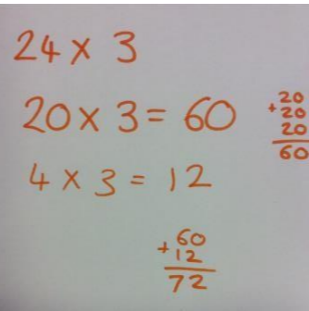 24 x 3
20 x 3 = 60
4 x 3 = 12
+ 20
20
20
60
+ 60
12
72